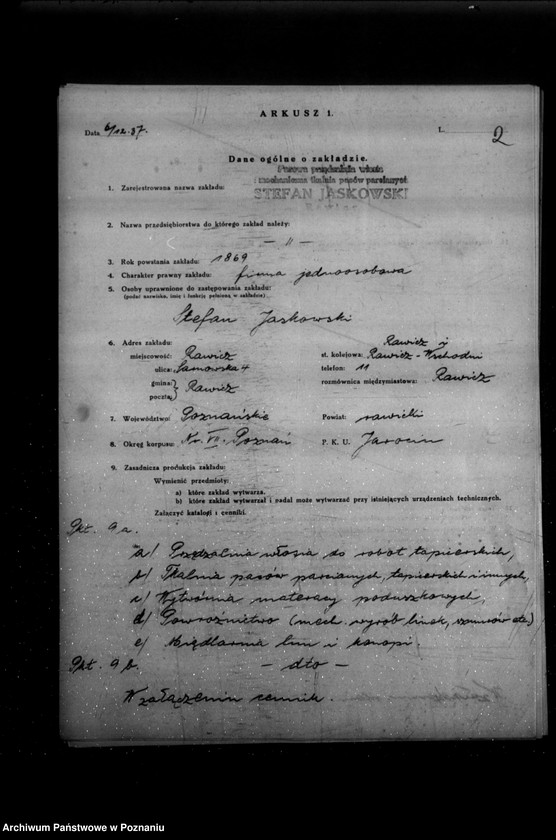 ARKUSZ 1.
Data 6/12.37.
L. 2
Dane ogólne o zakładzie.
Parowa przędzalnia włosia
i mechaniczna tkalnia pasów parcianych
1. Zarejestrowana nazwa zakładu: STEFAN JASKOWSKI
2. Nazwa przedsiębiorstwa do którego zakład należy:
— „ —
3. Rok powstania zakładu: 1869
4. Charakter prawny zakładu: firma jednoosobowa
5. Osoby uprawnione do zastępowania zakładu:
(podać nazwisko, imię i funkcję pełnioną w zakładzie)
Stefan Jaskowski
6. Adres zakładu: Rawicz i
miejscowość: Rawicz st. kolejowa: Rawicz-Wschodni
ulica: Sarnowska 4 telefon: 11
gmina: rozmównica międzymiastowa: Rawicz
poczta: Rawicz
7. Województwo: Poznańskie Powiat: rawicki
8. Okręg korpusu: Nr. VII. Poznań P. K. U. Jarocin
9. Zasadnicza produkcja zakładu:
Wymienić przedmioty:
a) które zakład wytwarza.
b) które zakład wytwarzał i nadal może wytwarzać przy istniejących urządzeniach technicznych.
Załączyć katalogi i cenniki.
Pkt. 9a.
a/ Przędzalnia włosia do robot tapicerskich,
b/ Tkalnia pasów parcianych, tapicerskich i innych,
c/ Wytwórnia materacy poduszkowych,
d/ Powroźnictwo (mech. wyrób linek, sznurów etc.)
e/ Międlarnia lnu i konopi.
Pkt. 9b. — dto —
W załączeniu cennik.
Archiwum Państwowe w Poznaniu